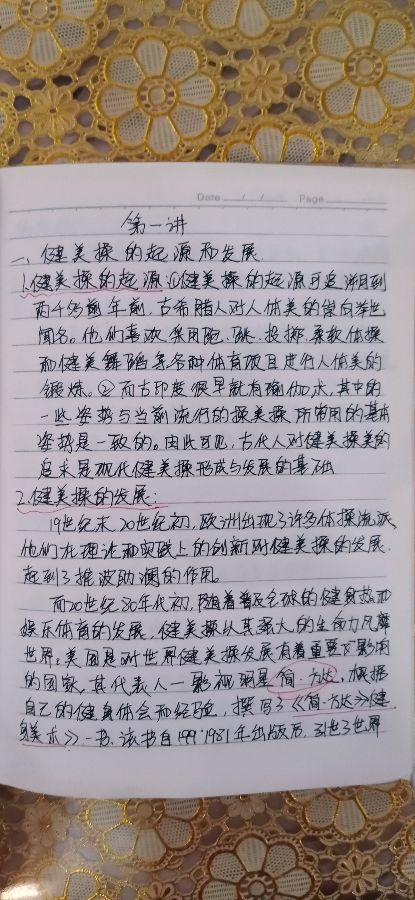 Date / / Page
第一讲
一、健美操的起源和发展
1.健美操的起源 ①健美操的起源可追溯到
两千多前年前,古希腊人对人体美的崇尚举世
闻名。他们喜欢采用跑、跳、投掷、柔软体操
和健美舞蹈等各种体育项目进行人体美的
锻炼。②而古印度很早就有瑜伽术,其中的
一些姿势与当前流行的操美操所常用的基本
姿势是一致的。由此可见,古代人对健美操美的
追求是现代健美操形成与发展的基础
2.健美操的发展:
19世纪末、20世纪初,欧洲出现了许多体操流派,
他们在理论和实践上的创新对健美操的发展
起到了推波助澜的作用。
而20世纪80年代初,随着普及全球的健身热和
娱乐体育的发展,健美操以其强大的生命力风靡
世界。美国是对世界健美操发展有着重要影响
的国家,其代表人一影视明星简·方达,根据
自己的健身体会和经验,撰写了《简·方达健
身美术》一书,该书自1981年出版后,引世了世界